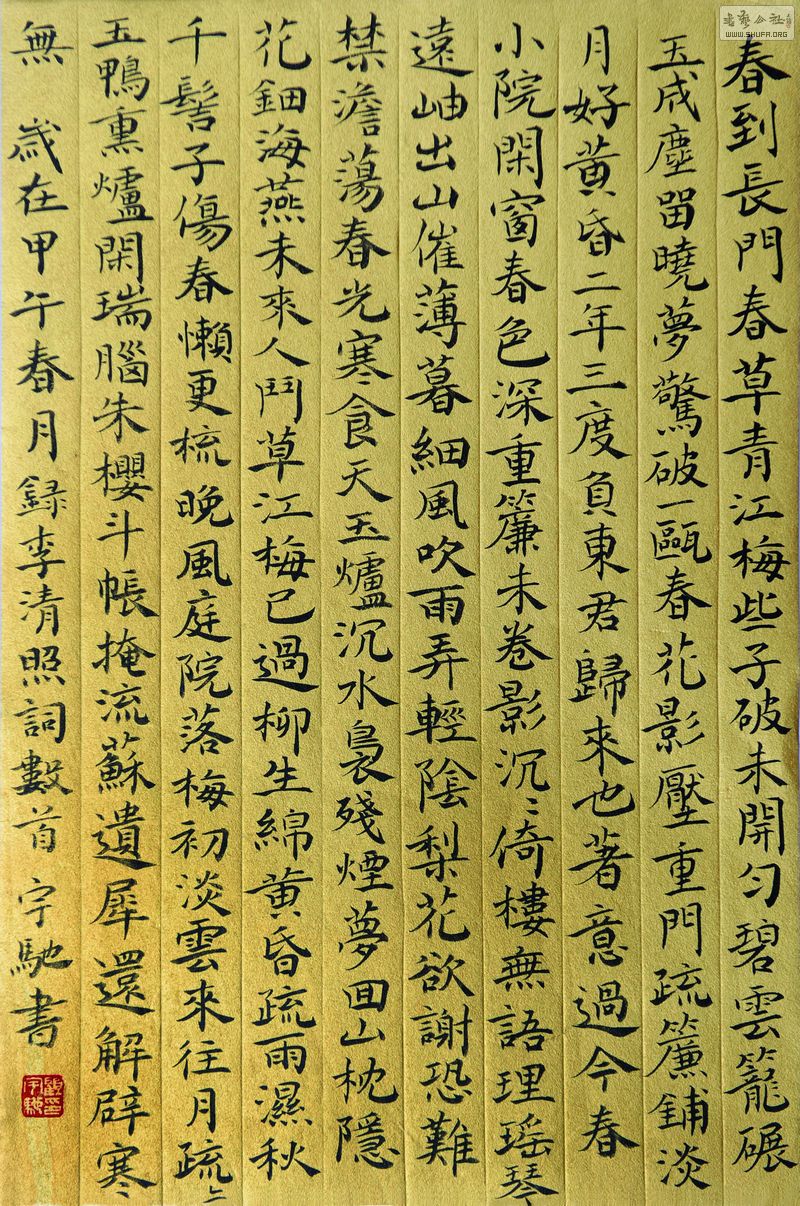 春到長門春草青江梅些子破未開勻碧雲籠碾
玉成塵留曉夢驚破一甌春花影壓重門疏簾鋪淡
月好黃昏二年三度負東君歸來也著意過今春
小院閑窗春色深重簾未卷影沉〻倚樓無語理瑤琴
遠岫出山催薄暮細風吹雨弄輕陰梨花欲謝恐難
禁澹蕩春光寒食天玉爐沉水裊殘煙夢回山枕隱
花鈿海燕未來人鬥草江梅已過柳生綿黃昏疏雨濕秋
千髻子傷春懶更梳晚風庭院落梅初淡雲來往月疏〻
玉鴨熏爐閑瑞腦朱櫻斗帳掩流蘇遺犀還解辟寒
無 歲在甲午春月録李清照詞數首 宇馳書
書藝公社
WWW.SHUFA.ORG